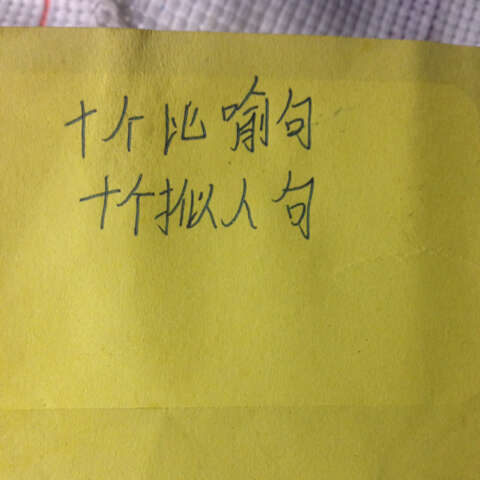 十个比喻句
十个拟人句